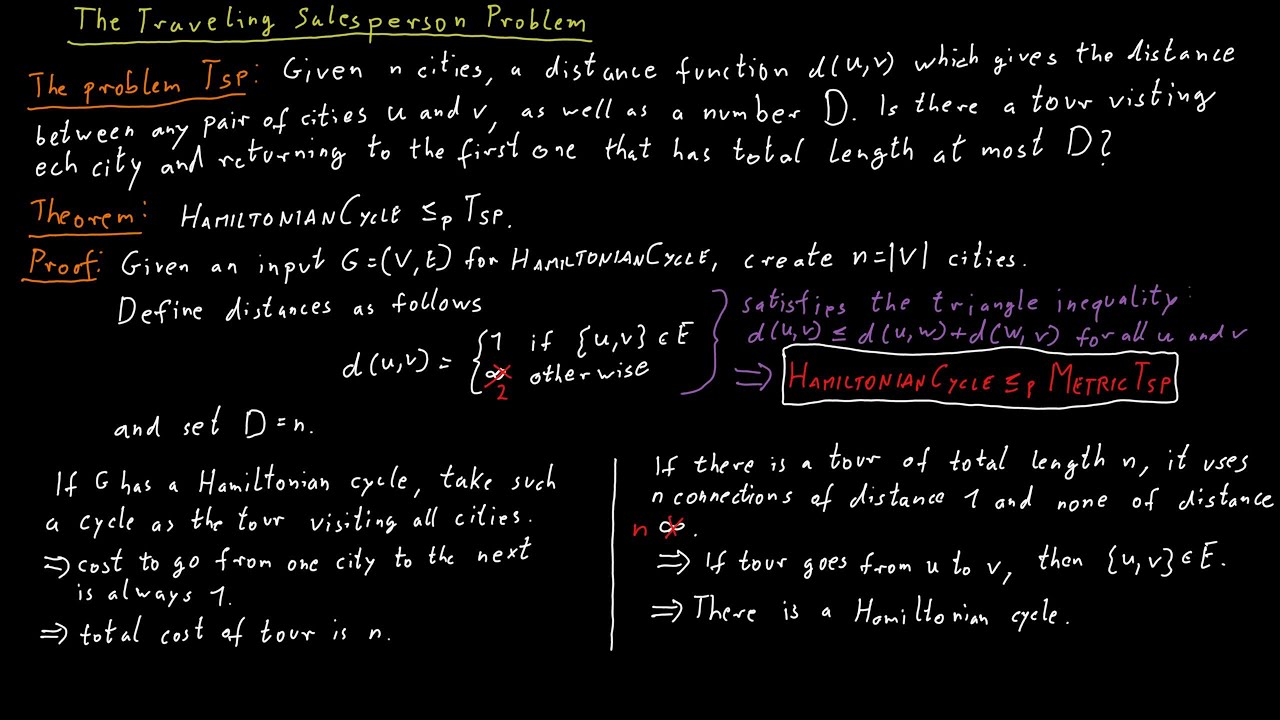 The Traveling Salesperson Problem
The problem TSP: Given n cities, a distance function d(u,v) which gives the distance
between any pair of cities u and v, as well as a number D. Is there a tour visting
ech city and returning to the first one that has total length at most D?
Theorem: HAMILTONIANCYCLE ≤p TSP.
Proof: Given an input G=(V,E) for HAMILTONIANCYCLE, create n=|V| cities.
Define distances as follows
d(u,v) = { 1 if {u,v} ∈ E
∞ otherwise
2
} satisfies the triangle inequality:
d(u,v) ≤ d(u,w)+d(w,v) for all u and v
⇒ HAMILTONIANCYCLE ≤p METRICTSP
and set D=n.
If G has a Hamiltonian cycle, take such
a cycle as the tour visiting all cities.
⇒ cost to go from one city to the next
is always 1.
⇒ total cost of tour is n.
If there is a tour of total length n, it uses
n connections of distance 1 and none of distance
n ∞.
⇒ If tour goes from u to v, then {u,v} ∈ E.
⇒ There is a Hamiltonian cycle.